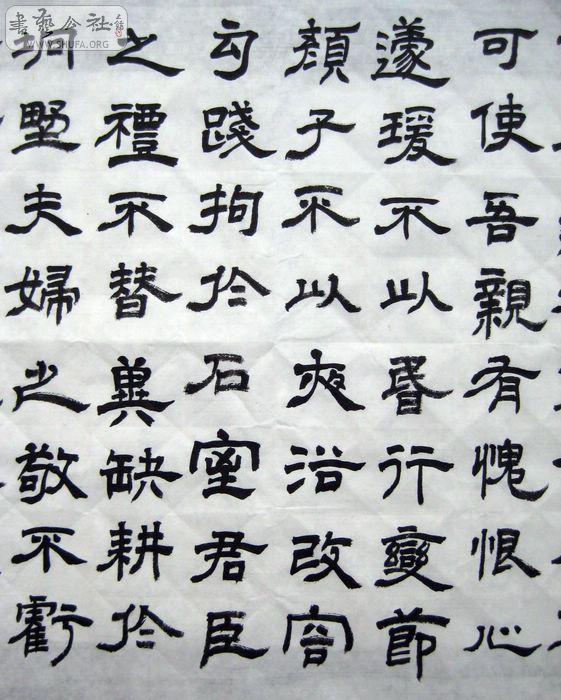 可使吾親有愧恨心
蘧瑗不以昏行變節
顏子不以夜浴改容
勾踐拘於石室君臣
之禮不替冀缺耕於
坰墅夫婦之敬不虧
書藝公社
WWW.SHUFA.ORG